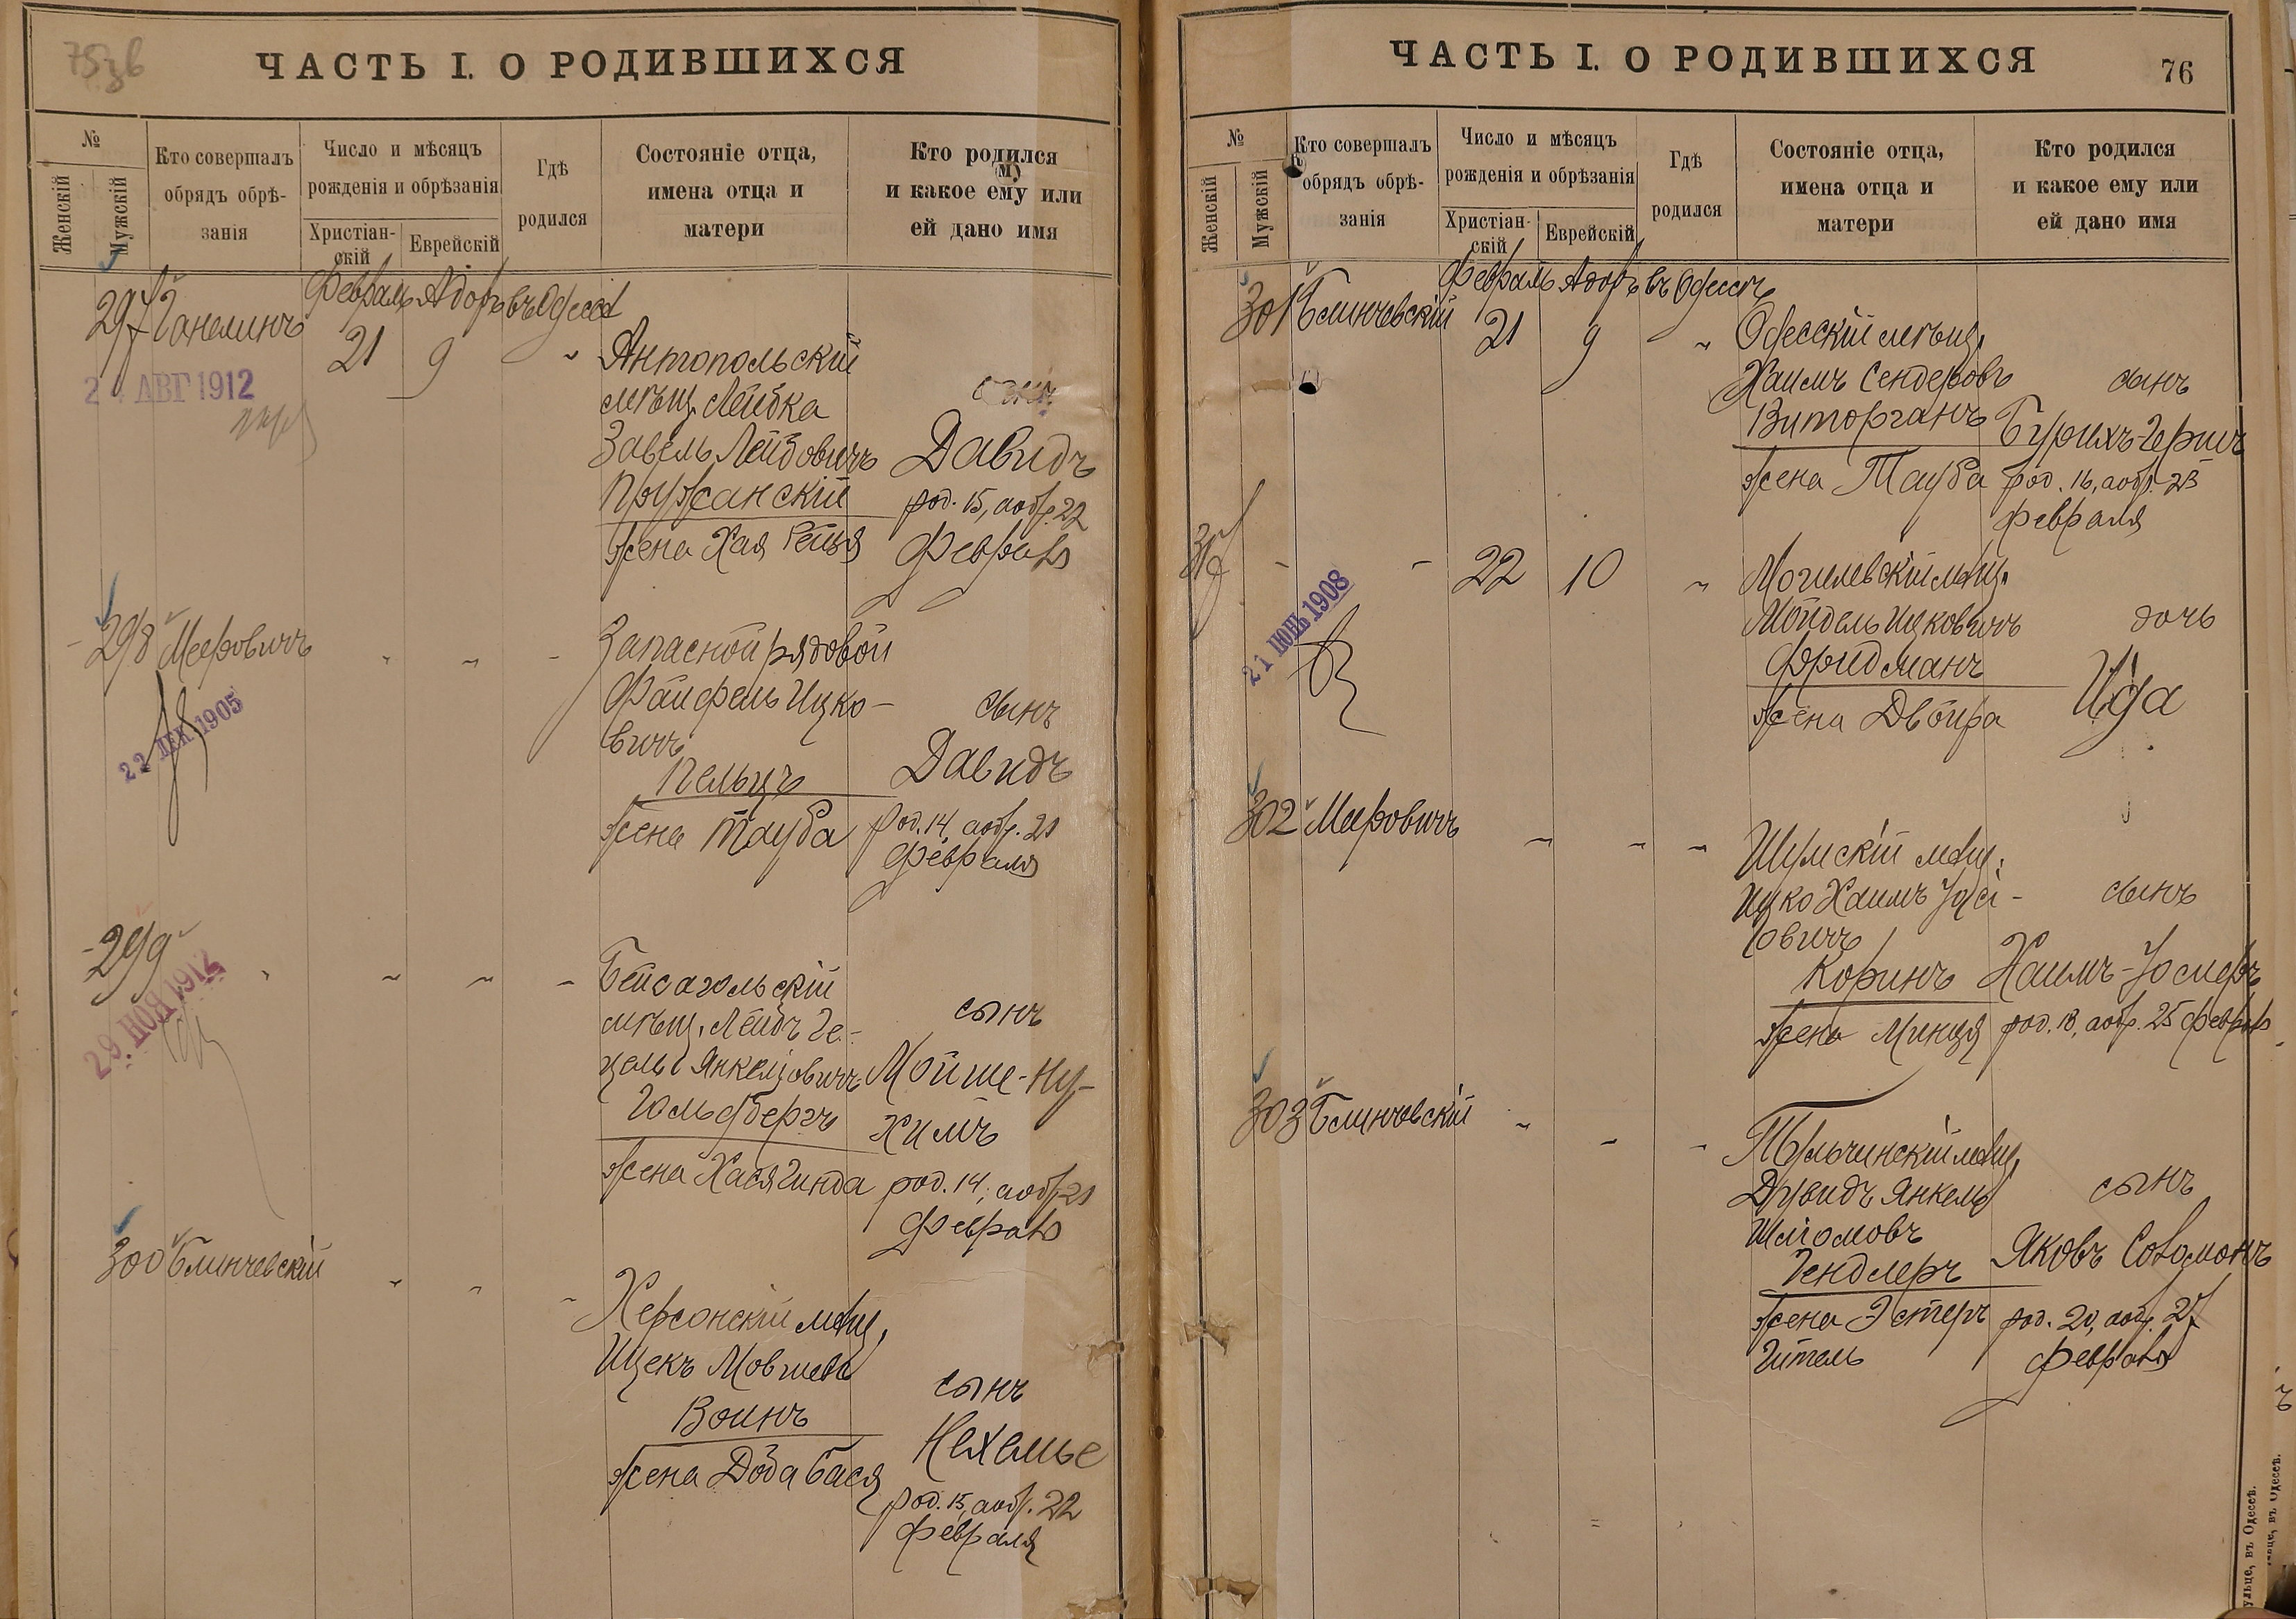 ЧАСТЬ I. О РОДИВШИХСЯ
№
Женскій
Мужскій
Кто совершалъ
обрядъ обрѣ-
занія
Число и мѣсяцъ
рожденія и обрѣзанія
Христіан-
скій
Еврейскій
Гдѣ
родился
Состояніе отца,
имена отца и
матери
Кто родился
и какое ему или
ей дано имя
Февраль Адаръ въ Одессѣ
297 Ганелинъ
21 9
24 АВГ 1912
Антопольскій
мѣщ. Лейбка
Завель Лейбовичъ
Пружанскій
жена Хая Рейзя
сынъ
Давидъ
род. 15, а обр. 22
Февраля
298 Мееровичъ
22 ДЕК 1905
Запасной рядовой
Файфель Ицко-
вичъ
Пельцъ
жена Тауба
сынъ
Давидъ
род. 14, а обр. 21
Февраля
299
29 НОЯ 1912
Бейсагольскій
мѣщ. Лейбъ Ге-
цель Янкелювичъ
Гольдбергъ
жена Хася Гинда
сынъ
Мойше-Ну-
химъ
род. 14, а обр. 21
Февраля
300 Блинчевскій
Херсонскій мѣщ.
Ицекъ Мовшевъ
Воинъ
жена Доба Бася
сынъ
Нехемье
род. 15, а обр. 22
февраля
ЧАСТЬ I. О РОДИВШИХСЯ
76
№
Женскій
Мужскій
Кто совершалъ
обрядъ обрѣ-
занія
Число и мѣсяцъ
рожденія и обрѣзанія
Христіан-
скій
Еврейскій
Гдѣ
родился
Состояніе отца,
имена отца и
матери
Кто родился
и какое ему или
ей дано имя
Февраль Адаръ въ Одессѣ
301 Блинчевскій
21 9
Одесскій мѣщ.
Хаимъ Сендеровъ
Виторганъ
жена Тауба
сынъ
Бурихъ-Гершъ
род. 16, а обр. 23
февраля
22 10
21 ІЮНЬ 1908
Могилевскій мѣщ.
Мойдель Ицковичъ
Фридманъ
жена Двойра
дочь
Ида
302 Мееровичъ
Шумскій мѣщ.
Ицко Хаимъ Іосі-
овичъ
Коринъ
жена Минця
сынъ
Хаимъ-Іосиферъ
род. 18, а обр. 25 февраля
303 Блинчовскій
Тульчинскій мѣщ.
Дувидъ Янкель
Шліомовъ
Гендлеръ
жена Эстеръ
Гитель
сынъ
Яковъ Соломонъ
род. 20, а обр. 27
февраля
ульце, въ Одессѣ.
въ Одессѣ.